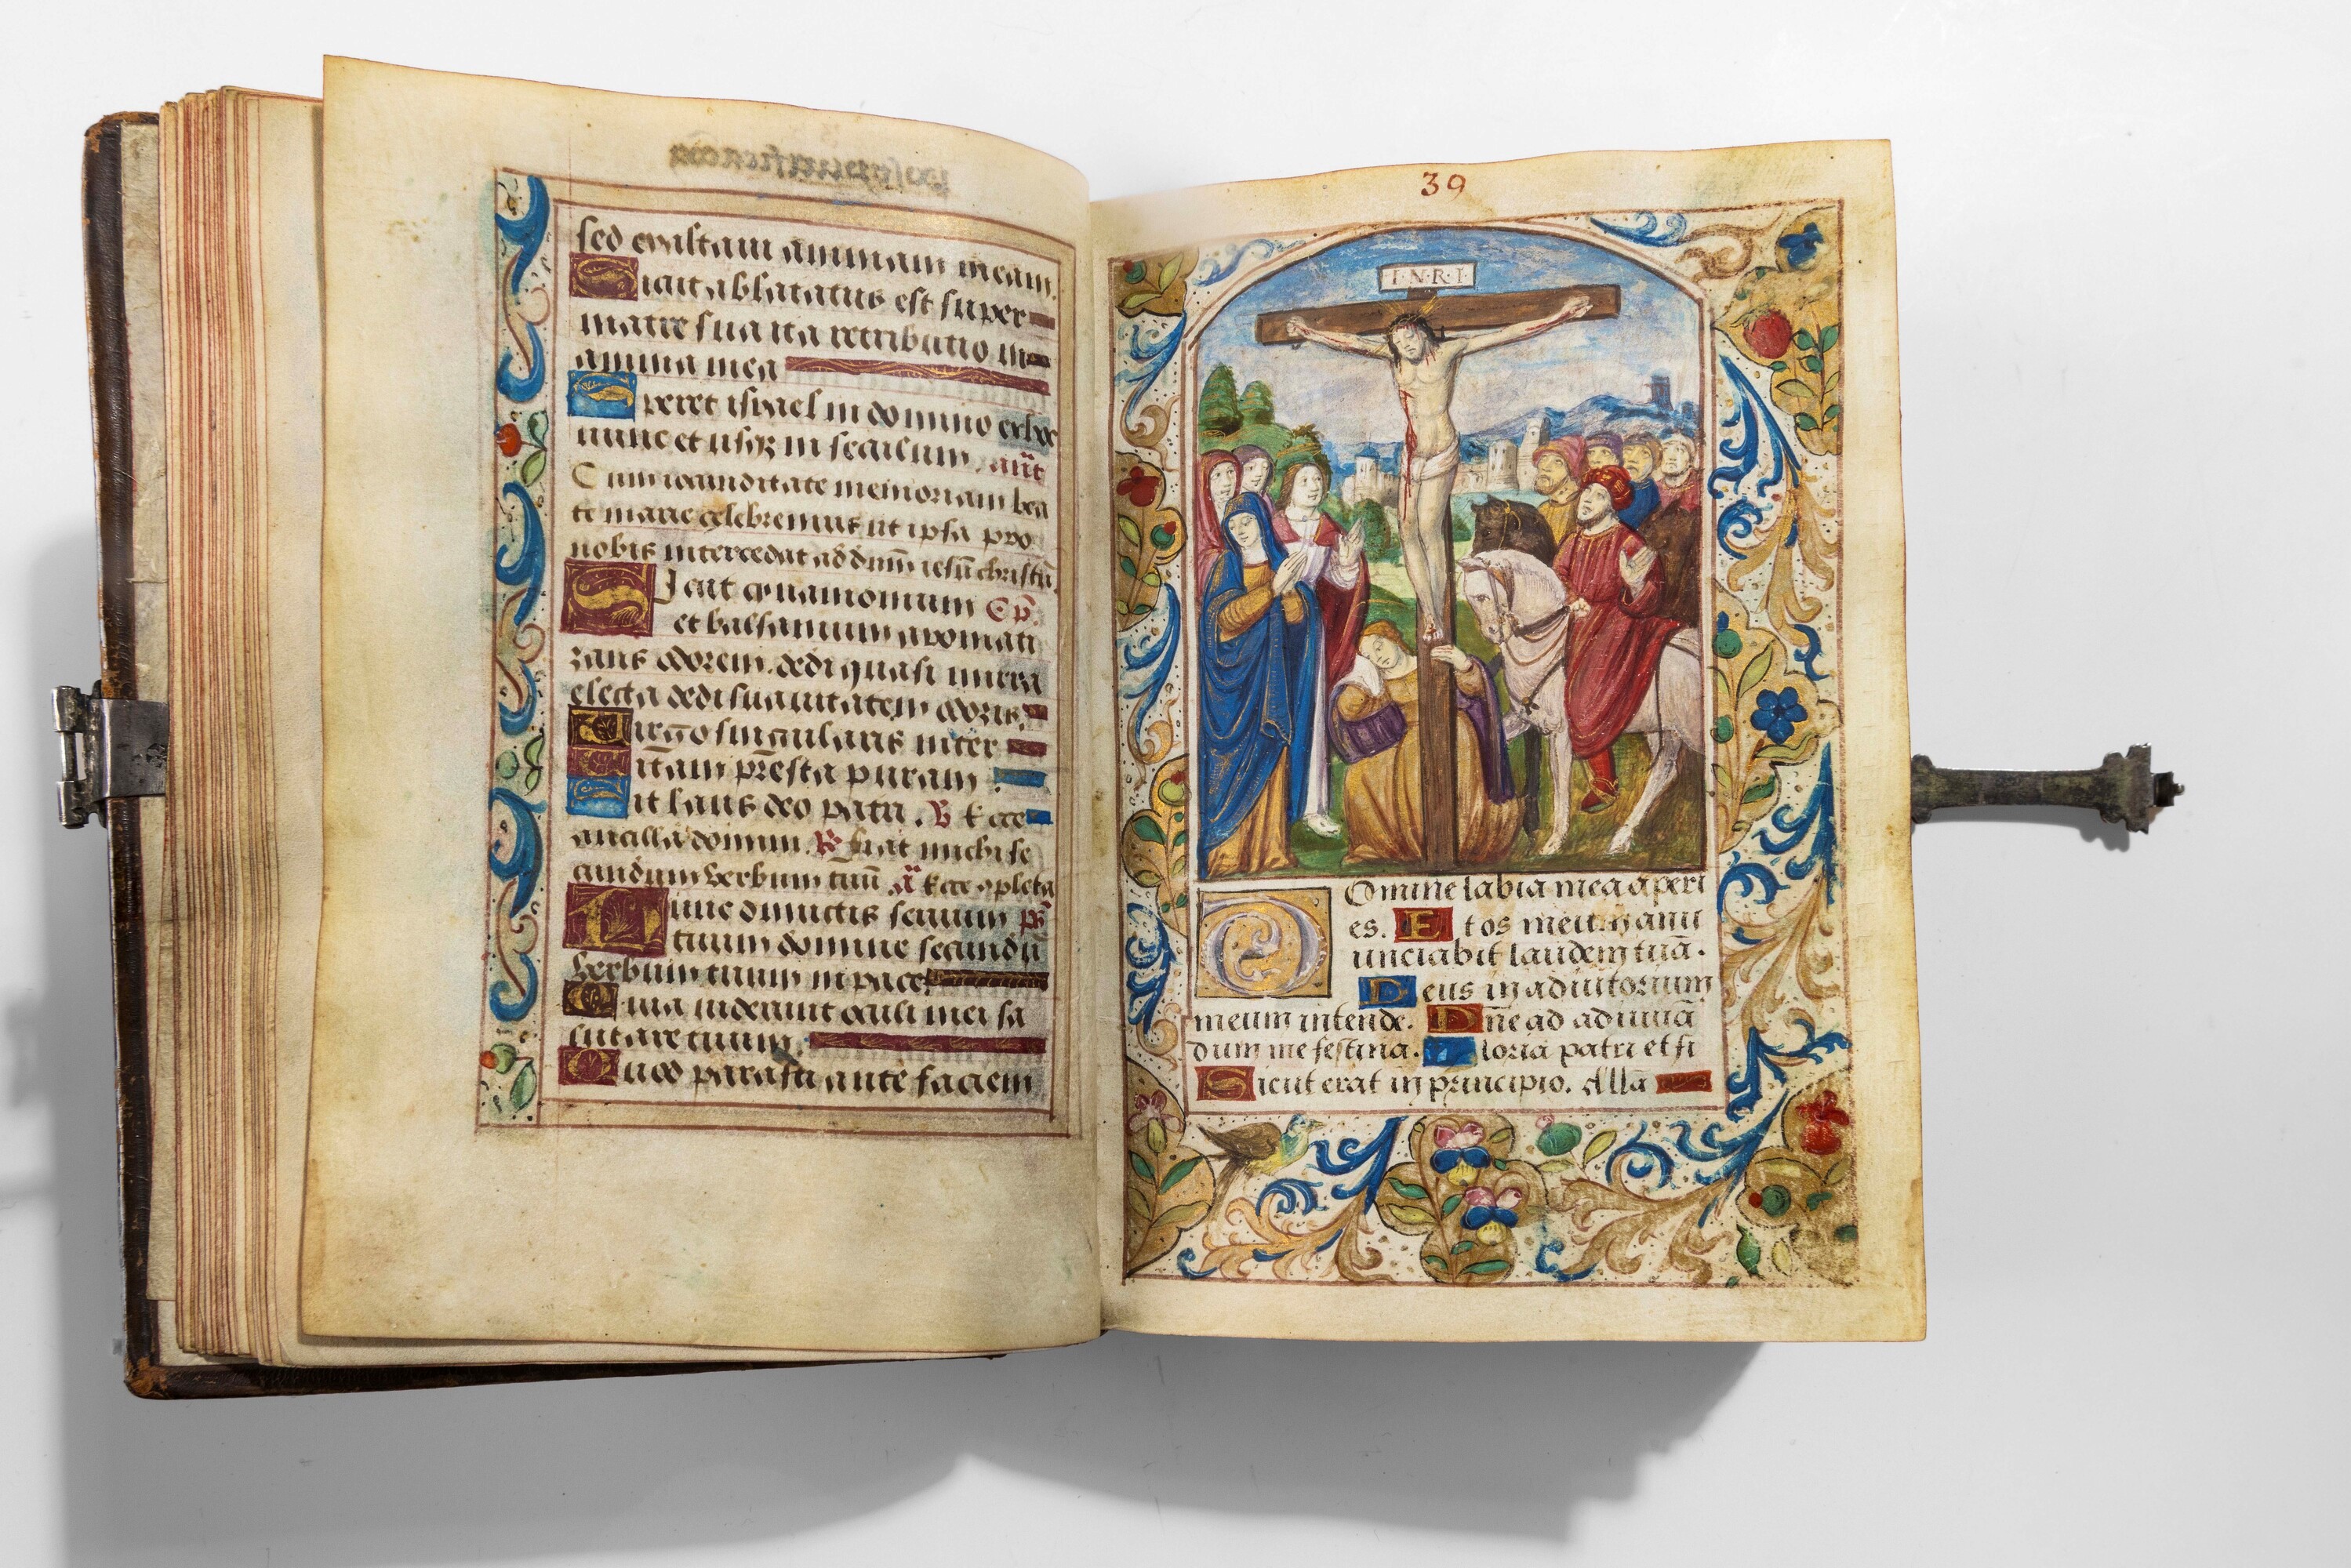 sed exaltaui animam meam.
Sicut ablactatus est super
matre sua ita retributio in
anima mea
Speret israel in domino ex hoc
nunc et usqz in seculum. añt
Cum iocunditate memoriam bea
te marie celebremus ut ipsa pro
nobis intercedat ad dnm̄ iesū christū.
Sicut cynamomum Cp̄.
et balsamum aromati
zans odorem dedi quasi mirra
electa dedi suauitatem odoris.
Uirgo singularis inter
Uitam pr̄esta puram
Sit laus deo patri. ꝟ Ecce
ancilla domini. ℟ fiat michi se
cundum verbum tuū ā Ecce cpleta
Nunc dimittis seruum ps̄
tuum domine secundū
verbum tuum in pace
Quia uiderunt oculi mei sa
lutare tuum.
Quod parasti ante faciem
39
I·N·R·I
Domine labia mea aperi
es. Et os meum annu
unciabit laudem tuā.
Deus in adiutorium
meum intende. Dn̄e ad adiuuā
dum me festina. Gloria patri et fi
Sicut erat in principio. Alla